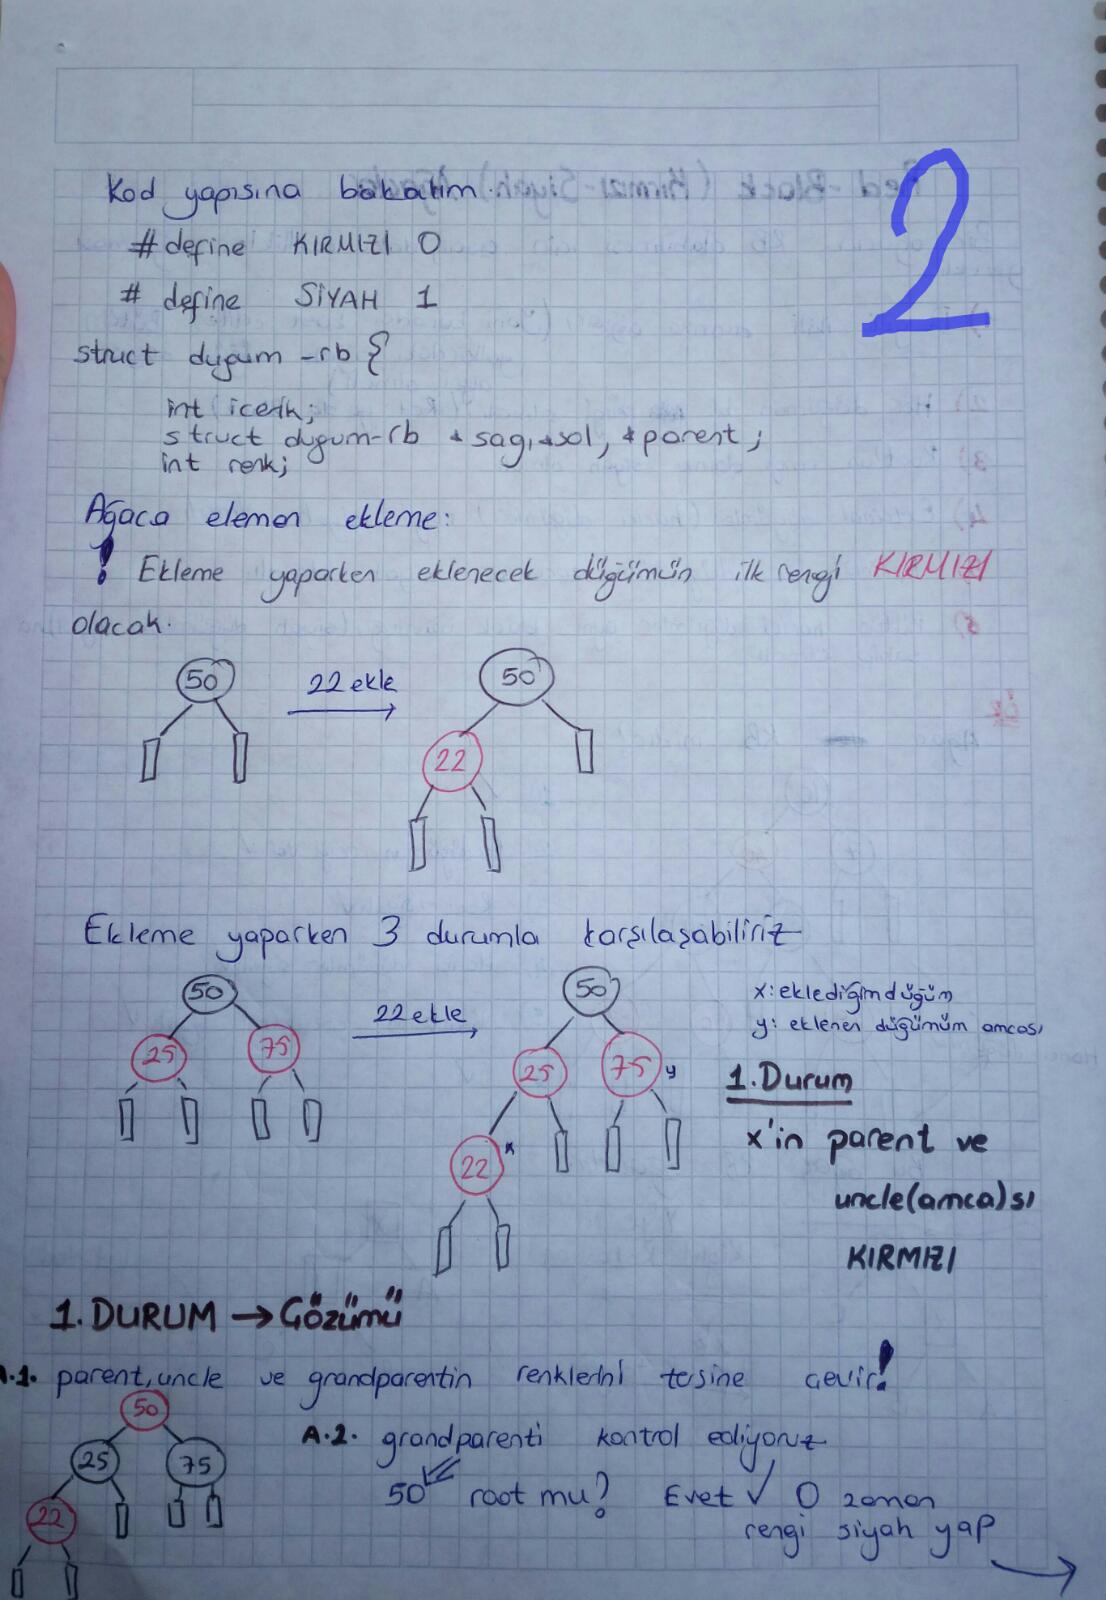 2
Kod yapısına bakalım.
#define KIRMIZI 0
# define SİYAH 1
struct dugum-rb {
int icerik;
struct dugum-rb *sag, *sol, *parent;
int renk;
Ağaca eleman ekleme:
! Ekleme yaparken eklenecek düğümün ilk rengi KIRMIZI
olacak.
50 22 ekle 50
22
Ekleme yaparken 3 durumla karşılaşabiliriz
50 22 ekle 50
25 75 25 75 y
22 x
x: eklediğim düğüm
y: eklenen düğümüm amcası
1. Durum
x'in parent ve
uncle(amca)sı
KIRMIZI
1. DURUM → Çözümü
A.1. parent, uncle ve grandparentin renklerini tersine çevir!
50
25 75
22
A.2. grandparenti kontrol ediyoruz
50 root mu? Evet ✓ O zaman
rengi siyah yap